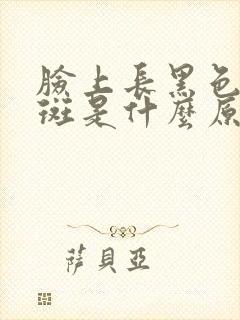 臉上長黑色
斑是什麼原
萨貝亞